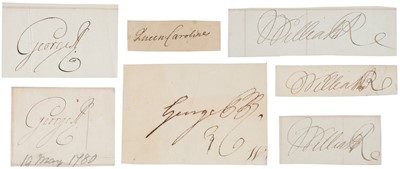 George R
Queen Caroline
William R
George R
George P R
William R
14 May 1780
William R